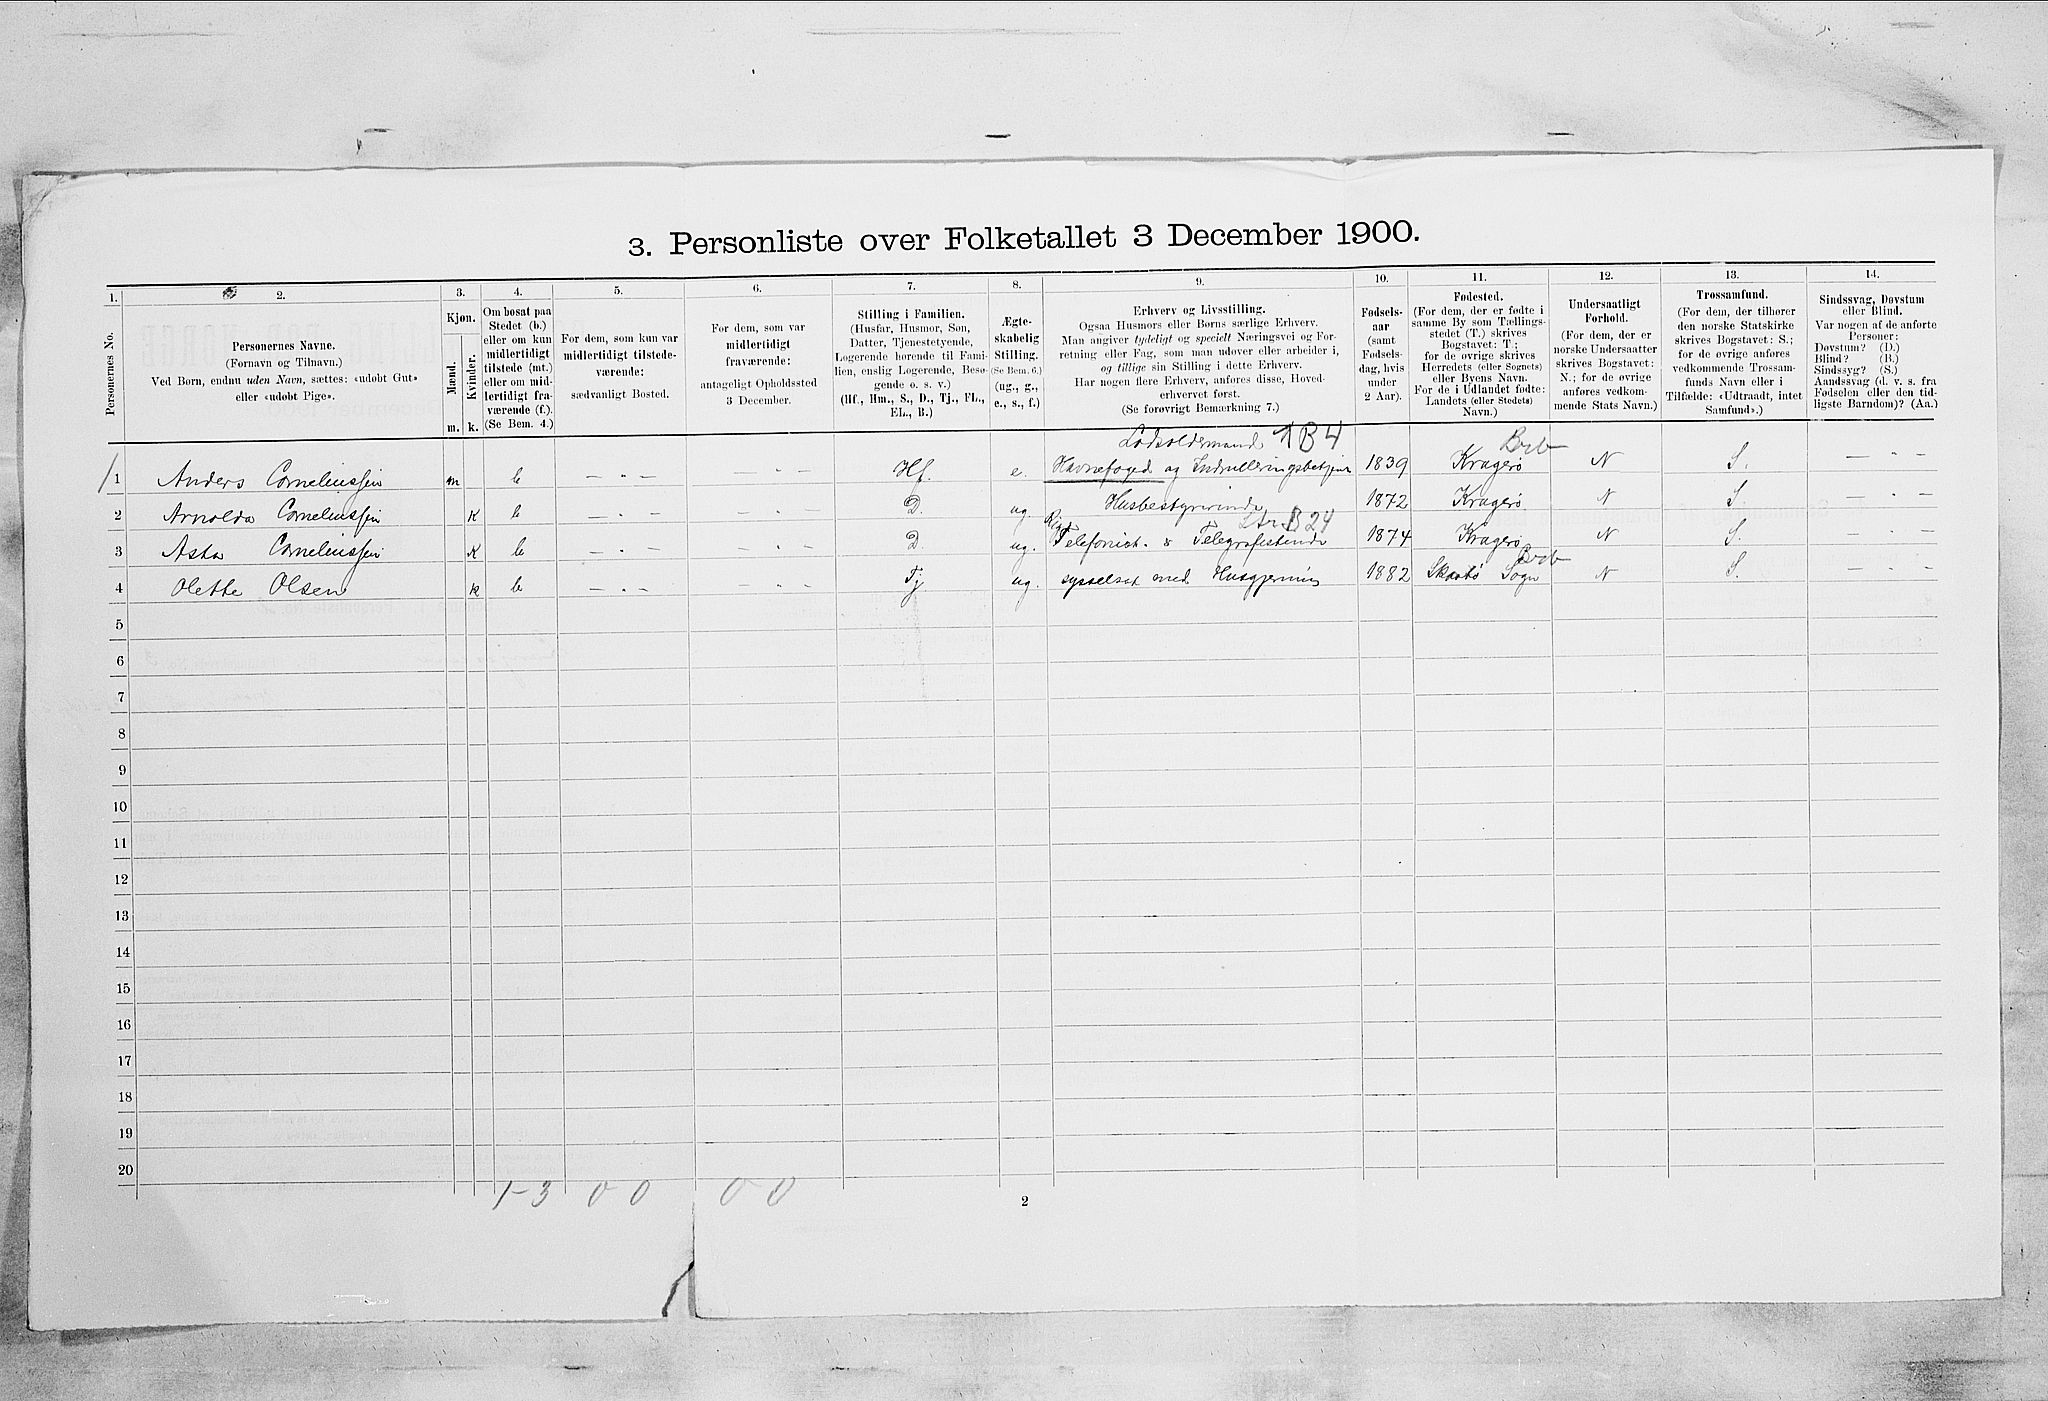 3. Personliste over Folketallet 3 December 1900.
1. 2. 3. 4. 5. 6. 7. 8. 9. 10. 11. 12. 13. 14.
Personernes No.
Personernes Navne.
(Fornavn og Tilnavn.)
Ved Børn, endnu uden Navn, sættes: «udøbt Gut»
eller «udøbt Pige».
Kjøn.
Mænd.
Kvinder.
m. k.
Om bosat paa
Stedet (b.)
eller om kun
midlertidigt
tilstede (mt.)
eller om mid-
lertidigt fra-
værende (f.).
(Se Bem. 4.)
For dem, som kun var
midlertidigt tilstede-
værende:
sædvanligt Bosted.
For dem, som var
midlertidigt
fraværende:
antageligt Opholdssted
3 December.
Stilling i Familien.
(Husfar, Husmor, Søn,
Datter, Tjenestetyende,
Logerende hørende til Fami-
lien, enslig Logerende, Besø-
gende o. s. v.)
(Hf., Hm., S., D., Tj., FL.,
EL., B.)
Ægte-
skabelig
Stilling.
(Se Bem. 6.)
(ug., g.,
e., s., f.)
Erhverv og Livsstilling.
Ogsaa Husmors eller Børns særlige Erhverv.
Man angiver tydeligt og specielt Næringsvei og For-
retning eller Fag, som man udøver eller arbeider i,
og tillige sin Stilling i dette Erhverv.
Har nogen flere Erhverv, anføres disse, Hoved-
erhvervet først.
(Se forøvrigt Bemærkning 7.)
Fødsels-
aar
(samt
Fødsels-
dag, hvis
under
2 Aar).
Fødested.
(For dem, der er fødte i
samme By som Tællings-
stedet (T.) skrives
Bogstavet: T.;
for de øvrige skrives
Herredets (eller Sognets)
eller Byens Navn.
For de i Udlandet fødte:
Landets (eller Stedets)
Navn.)
Undersaatligt
Forhold.
(For dem, der er
norske Undersaatter
skrives Bogstavet:
N.; for de øvrige
anføres vedkom-
mende Stats Navn.)
Trossamfund.
(For dem, der tilhører
den norske Statskirke
skrives Bogstavet: S.;
for de øvrige anføres
vedkommende Trossam-
funds Navn eller i
Tilfælde: «Udtraadt, intet
Samfund».)
Sindssvag, Døvstum
eller Blind.
Var nogen af de anførte
Personer:
Døvstum? (D.)
Blind? (B.)
Sindssyg? (S.)
Aandssvag (d. v. s. fra
Fødselen eller den tid-
ligste Barndom)? (Aa.)
Lodsoldermand 1 B 4 Brb
1 Anders Corneliussen m b — „ — — „ — Hf. e. Havnefoged og Indrulleringsbetjent 1839 Kragerø N S. — „ —
2 Arnolda Corneliussen K b — „ — — „ — D. ug. Husbestyrerinde 1872 Kragerø N S. — „ —
B 24
3 Asta Corneliussen K b — „ — — „ — D. ug. Telefonist- & Telegrafistinde 1874 Kragerø N S. — „ —
Brb
4 Olette Olsen k b — „ — — „ — Tj ug. sysselsat med Husgjerning 1882 Skaatø Sogn N S. — „ —
5
6
7
8
9
10
11
12
13
14
15
16
17
18
19
20
1-3 0 0 0 0
2